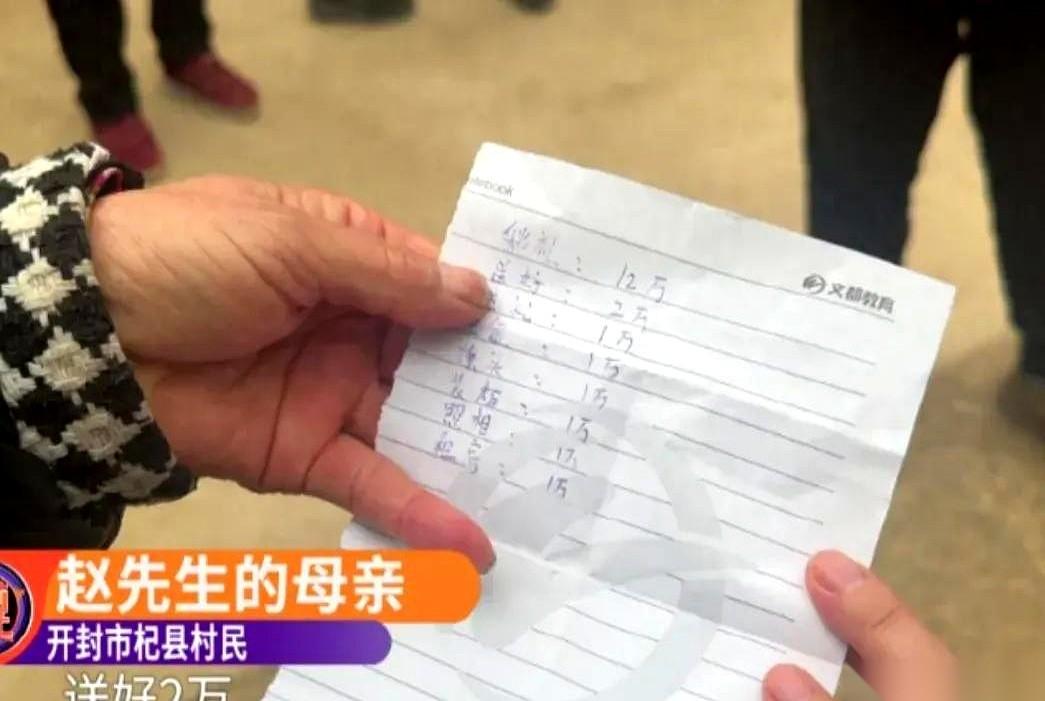 notebook
文都教育
：12万
送好：2万
：1万
：1万
：1万
：1万
照相：1万
：1万
赵先生的母亲
开封市杞县村民
送好2万